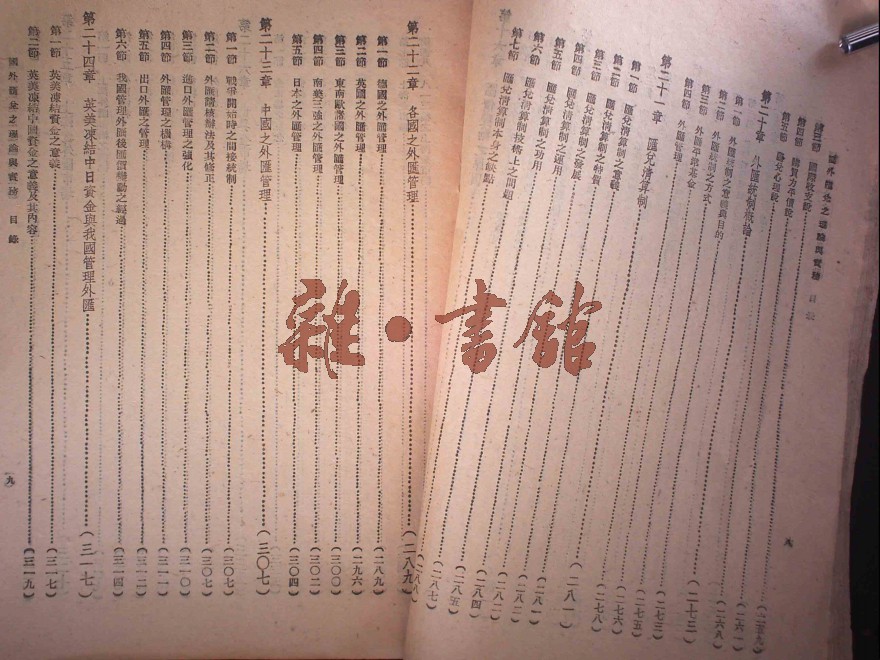 國外匯兌之理論與實踐 目錄
第三節 國際收支說
第四節 購買力平價說
第五節 匯兌心理說
第二十章 外匯統制概論 (二五九)
第一節 外匯統制之意義與目的 (二六一)
第二節 外匯統制之方式 (二六八)
第三節 外匯平準基金 (二七二)
第四節 外匯管理
第二十一章 匯兌清算制 (二七三)
第一節 匯兌清算制之意義 (二七五)
第二節 匯兌清算制之發展 (二七六)
第三節 匯兌清算制之特質 (二七八)
第四節 匯兌清算制之運用 (二八一)
第五節 匯兌清算制之功用 (二八一)
第六節 匯兌清算制技術上之問題 (二八二)
第七節 匯兌清算制本身之缺點
八
第二十二章 各國之外匯管理 (二八九)
第一節 德國之外匯管理 (二八九)
第二節 英國之外匯管理 (二九六)
第三節 東南歐諸國之外匯管理 (三〇〇)
第四節 南美三強之外匯管理 (三〇二)
第五節 日本之外匯管理 (三〇四)
第二十三章 中國之外匯管理 (三〇七)
第一節 戰爭開始時之間接統制 (三〇七)
第二節 外匯請核辦法及其修正 (三〇七)
第三節 進口外匯管理之強化 (三一〇)
第四節 外匯管理之機構 (三一一)
第五節 出口外匯之管理 (三一二)
第六節 我國管理外匯後匯價變動之經過 (三一四)
第二十四章 英美凍結中日資金與我國管理外匯 (三一七)
第一節 英美凍結資金之意義 (三一七)
第二節 英美凍結中國資金之意義及其內容 (三一九)
國外匯兌之理論與實踐 目錄
九
雜·書館